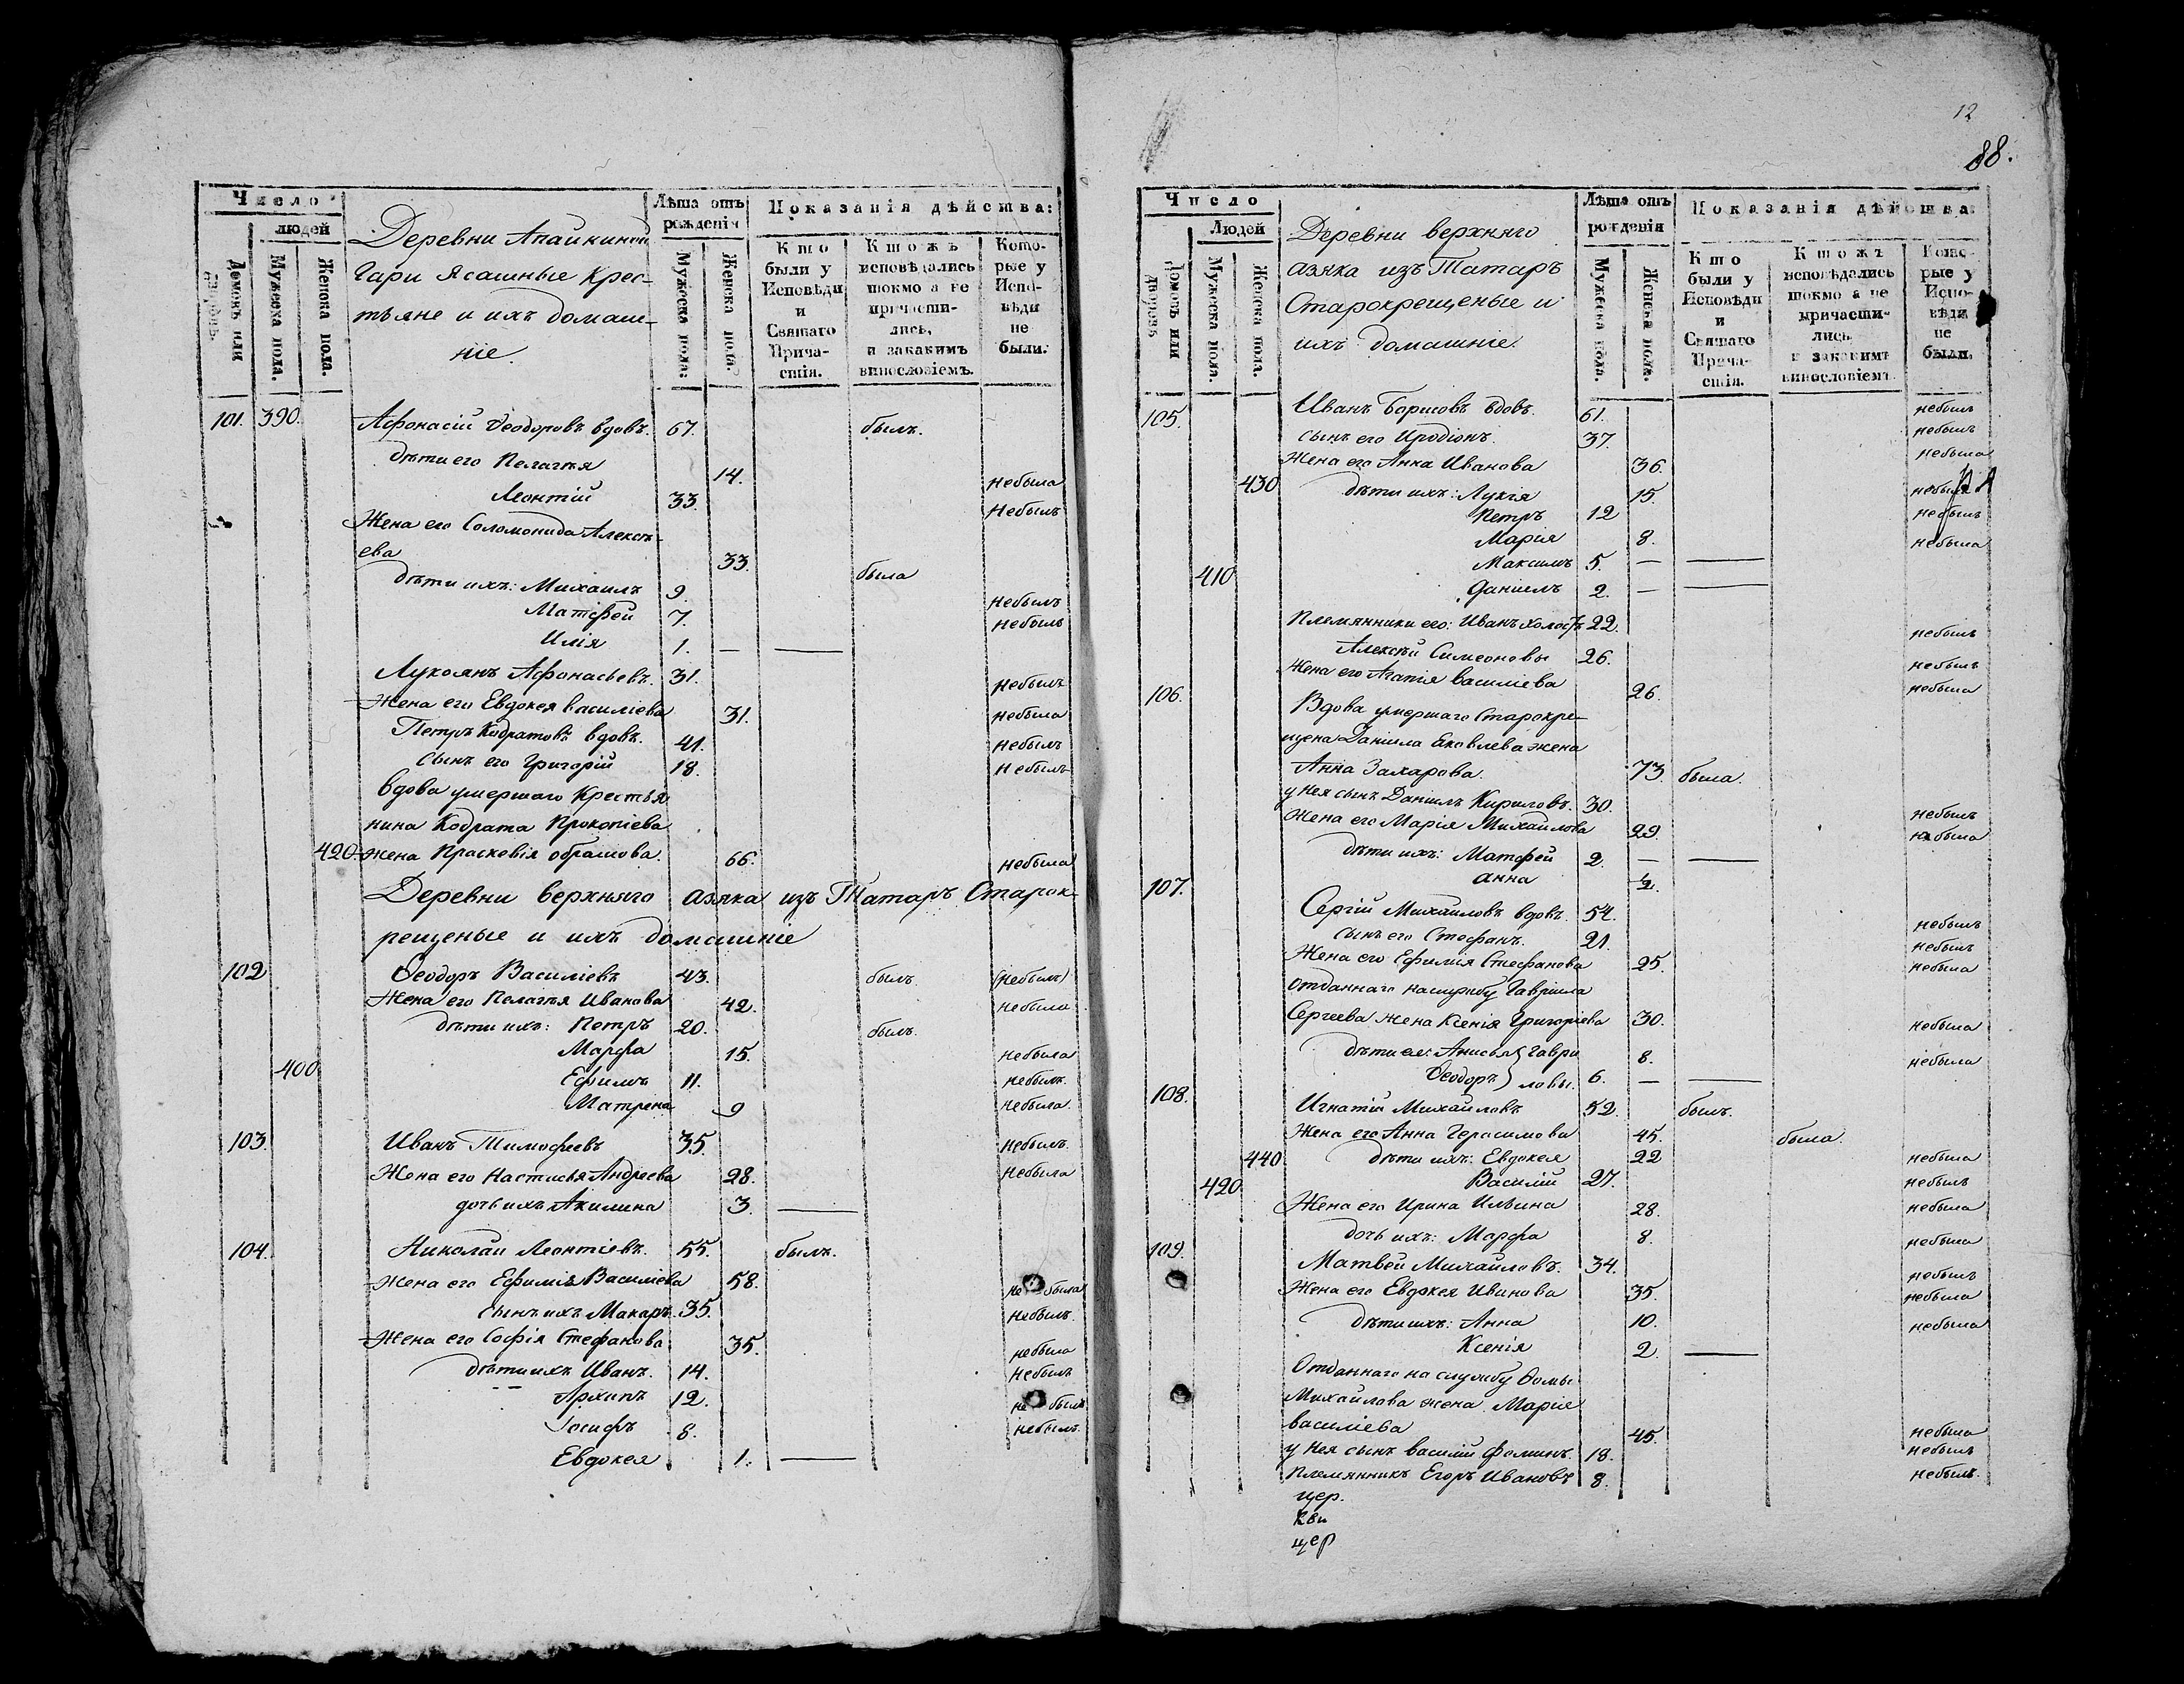 Число
людей
Домовъ или дворовъ.
Мужеска пола.
Женска пола.
Деревни Апайкиной
Гари Ясашные крес-
тьяне и ихъ домаш-
ніе.
Лѣта отъ рожденія
Мужеска пола.
Женска пола.
Показанія дѣйства:
Кто были у Исповѣди и Святаго Причастія.
Ктожъ исповѣдались токмо а не причастились, и закакимъ винословіемъ.
Которые у Исповѣди не были.
101. 390. Афонасій Ѳеодоровъ вдовъ. 67. былъ.
дѣти его Пелагѣя 14. небыла
Леонтій 33. Небылъ
Жена его Соломонида Алексѣ-
ева 33. была
дѣти ихъ: Михаилъ 9. небылъ
Матѳей 7. небылъ
Илія 1. — —
Лукоянъ Афонасьевъ. 31. небылъ
Жена его Евдокея василіева 31. небыла
Петръ Кодратовъ вдовъ. 41. небылъ
сынъ его Григорій 18. небылъ
вдова умершаго Крестья
нина Кодрата Прокопіева
420. жена Прасковія обрамова. 66. небыла
Деревни верхняго азяка изъ Татаръ Старок-
рещеные и ихъ домашніе
102 Ѳеодоръ Василіевъ 43. былъ. (небылъ)
Жена его Пелагѣя Иванова 42. небыла
дѣти ихъ: Петръ 20. былъ.
Марфа 15. небыла
400 Ефимъ 11. небылъ.
Матрена 9 небыла.
103. Иванъ Тимофеевъ 35. небылъ.
Жена его Настасья Андреева 28. небыла
дочь ихъ Акилина 3. —
104. Николай Леонтіевъ. 55. былъ.
Жена его Ефимія Василіева 58. не была
сынъ ихъ Макаръ. 35. небылъ.
Жена его Софія Стефанова 35. небыла
дѣти ихъ Иванъ. 14. небылъ
Архипъ 12. не былъ
Іосифъ 8. небылъ.
Евдокея 1. —
12
88.
Число
Людей
Домовъ или дворовъ
Мужеска пола.
Женска пола.
Деревни верхняго
азяка изъ Татаръ
Старокрещеные и
ихъ домашніе.
Лѣта отъ рожденія
Мужеска пола.
Женска пола.
Показанія дѣйства:
Кто были у Исповѣди и Святаго Причастія.
Ктожъ исповѣдались токмо а не причастились, и закакимъ винословіемъ.
Которые у Исповѣди не были.
105. Иванъ Борисовъ вдовъ. 61. небылъ
сынъ его Иродіонъ. 37. небылъ
Жена его Анна Иванова 36. небыла
430 дѣти ихъ: Лукія 15. небыла
Петръ 12 небылъ
Марія 8. небыла
Максимъ 5. — —
410 Даніилъ 2. — —
Племянники его: Иванъ холостъ 22. небылъ
Алексѣй Симеоновы 26. небылъ
Жена его Агапія василіева 26. небыла
106. Вдова умершаго Старокре-
щена Даніила Яковлева жена
Анна Захарова. 73. была.
у нея сынъ Даніилъ Кириловъ. 30. небылъ
Жена его Марія Михайлова 29. небыла
дѣти ихъ: Матфей 2. — —
анна 1/2.
107. Сергій Михайловъ вдовъ. 54. небылъ
сынъ его Стефанъ. 21. небылъ
Жена его Ефимія Стефанова 25. небыла
Отданнаго наслужбу Гавріила
Сергеева жена Ксенія Григоріева 30. небыла
дѣти ея: Анисья Гаври 8. небыла
Ѳеодоръ ловы. 6. — —
108. Игнатій Михайловъ 52. былъ.
Жена его Анна Герасимова 45. была.
440 дѣти ихъ: Евдокея 22 небыла
420 Василій 27. небылъ
Жена его Ирина Ильина 28. небыла
дочь ихъ: Марфа 8. небыла
109. Матвей Михайловъ. 34. небылъ
Жена его Евдокея Иванова 35. небыла
дѣти ихъ: Анна 10. небыла
Ксенія 2. —
Отданнаго на службу Ѳомы
Михайлова жена Марія
василіева 45. небыла
у нея сынъ василій Фоминъ. 18. небылъ
племянникъ Егоръ Ивановъ 8. небылъ.
цер.
кви
цер